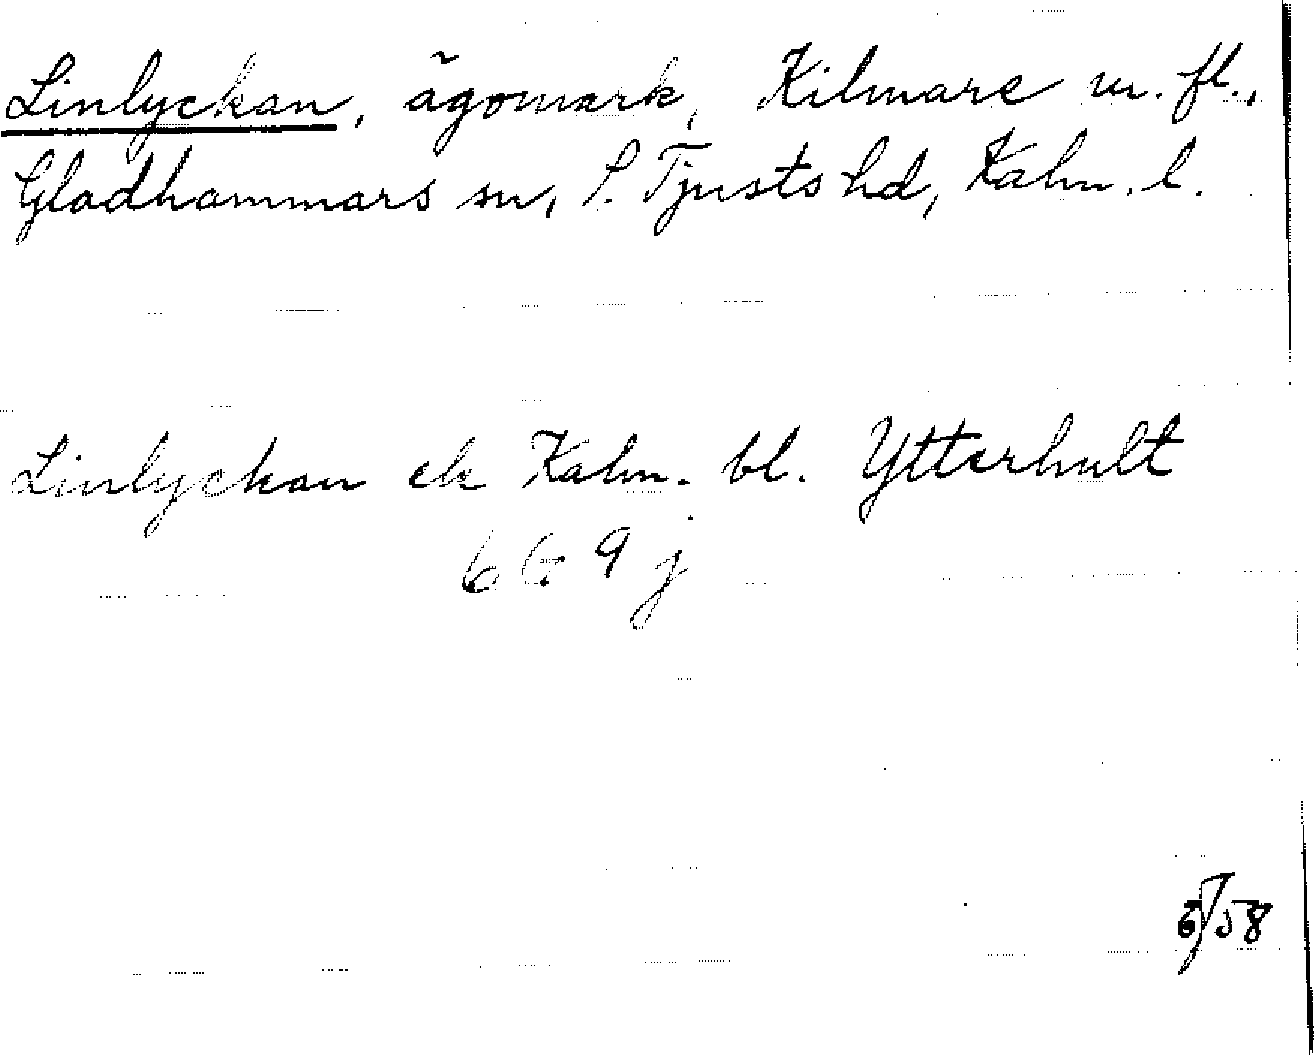 Linlyckan, ägomark, Kilmare m. fl.,
Gladhammars sn, S. Tjusts hd, Kalm. l.
Linlyckan ek Kalm. bl. Ytterhult
6 G 9 j